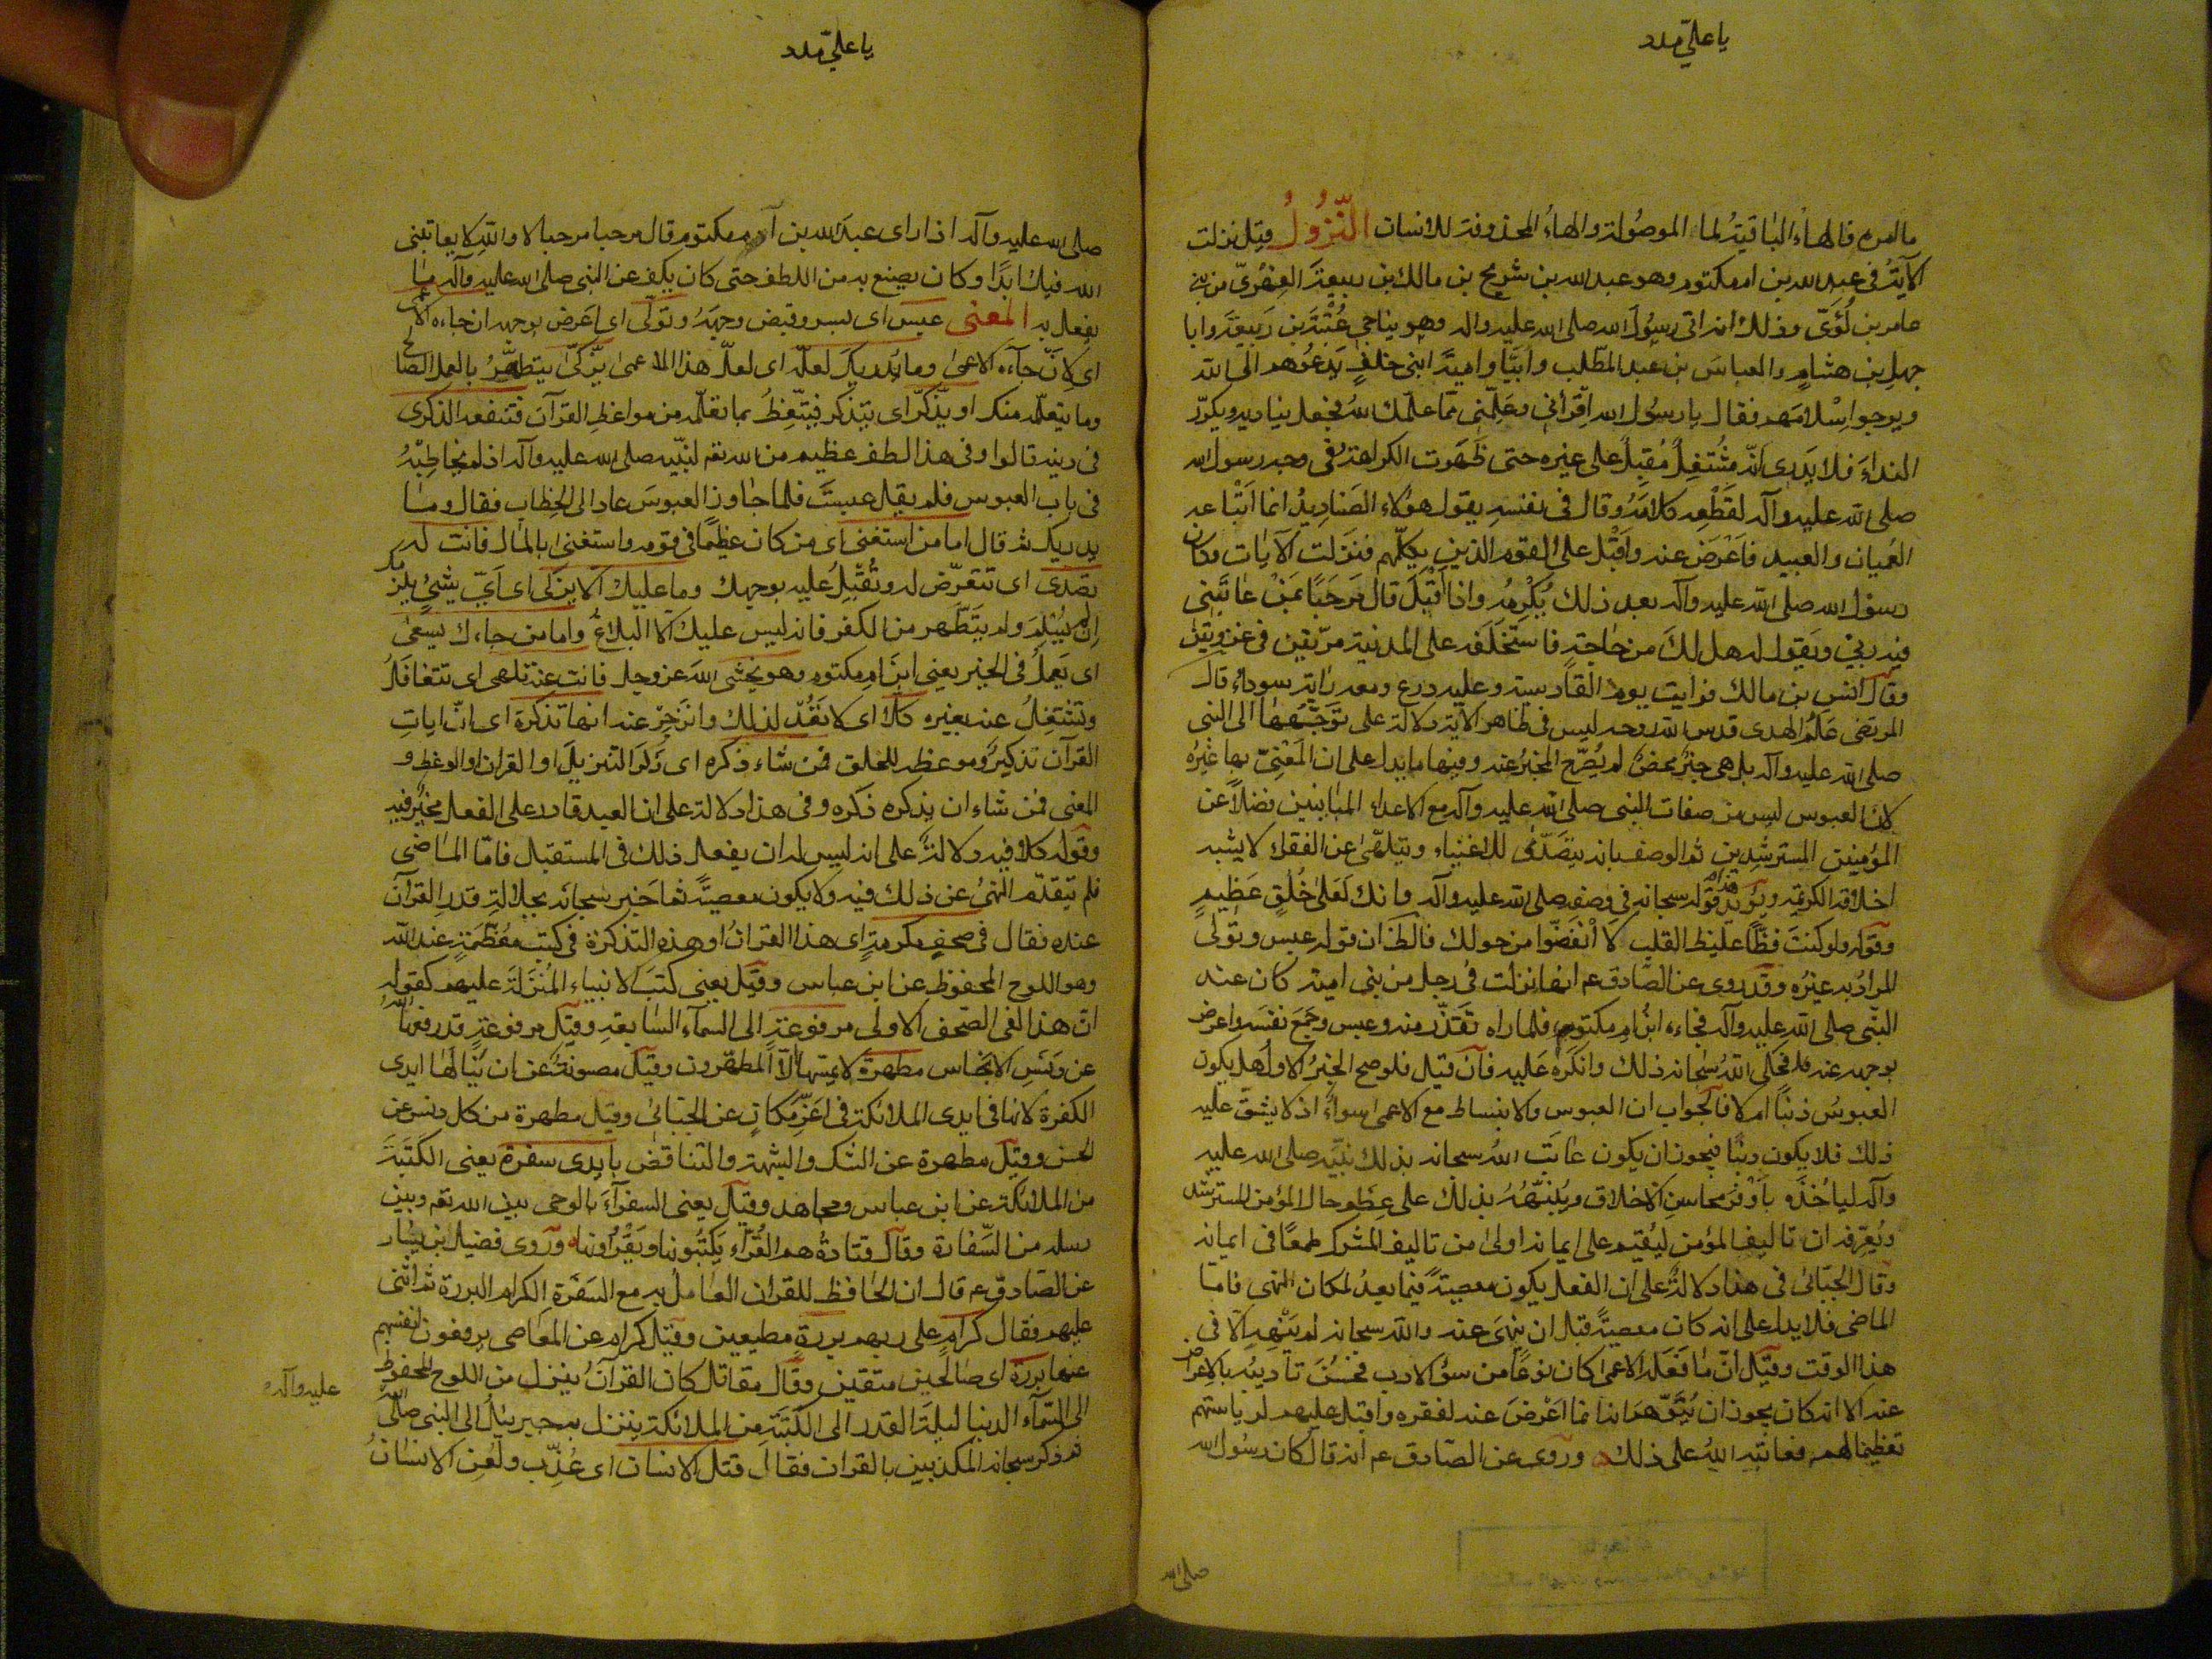 يا علي مدد
ما امره فالهاء الباقية لما الموصولة والهاء المحذوفة للانسان النزول قيل نزلت
الآية في عبد الله بن ام مكتوم وهو عبد الله بن شريح بن مالك بن ربيعة الفهري من بني
عامر بن لؤي وذلك انه اتى رسول الله صلى الله عليه واله وهو يناجي عتبة بن ربيعة وابا
جهل بن هشام والعباس بن عبد المطلب وابيا وامية ابني خلف يدعوهم الى الله
ويرجو اسلامهم فقال يا رسول الله اقرأني وعلمني مما علمك الله فجعل يناديه ويكرر
النداء فلا يدرى انه مشتغل مقبل على غيره حتى ظهرت الكراهة في وجه رسول الله
صلى الله عليه وآله لقطعه كلامه وقال في نفسه يقول هؤلاء الصناديد انما اتباعه
العميان والعبيد فاعرض عنه واقبل على القوم الذين يكلمهم فنزلت الآيات وكان
رسول الله صلى الله عليه وآله بعد ذلك يكرمه واذا اقبل قال مرحبا بمن عاتبني
فيه ربي ويقول له هل لك من حاجة فاستخلفه على المدينة مرتين في غزوتين
وقال انس بن مالك فرايته يوم القادسية وعليه درع ومعه راية سوداء قال
المرتضى علم الهدى قدس الله روحه ليس في ظاهر الآية دلالة على توجهها الى النبي
صلى الله عليه وآله بل هي خبر محض لم يصرح المخبر عنه وفيها ما يدل على ان المعني بها غيره
لان العبوس ليس من صفات النبي صلى الله عليه وآله مع الاعداء المباينين فضلا عن
المؤمنين المسترشدين ثم الوصف بانه يتصدى للاغنياء ويتلهى عن الفقراء لا يشبه
اخلاقه الكريمة ويؤيد هذا قوله سبحانه في وصفه صلى الله عليه وآله وانك لعلى خلق عظيم
وقوله ولو كنت فظا غليظ القلب لانفضوا من حولك فالظ ان قوله عبس وتولى
المراد به غيره وقد روى عن الصادق ع م انها نزلت في رجل من بني امية كان عند
النبي صلى الله عليه وآله فجاءه ابن ام مكتوم فلما راه تقذر منه وعبس وجمع نفسه واعرض
بوجهه عنه فحكى الله سبحانه ذلك وانكره عليه فان قيل فلو صح الخبر الاول هل يكون
العبوس ذنبا ام لا فالجواب ان العبوس والانبساط مع الاعمى سواء اذ لا يشق عليه
ذلك فلا يكون ذنبا فيجوز ان يكون عاتب الله سبحانه بذلك نبيه صلى الله عليه
وآله لياخذه باوفر محاسن الاخلاق وينبهه بذلك على عظم حال المؤمن المسترشد
ويعرفه ان تاليف المؤمن ليقيم على ايمانه اولى من تاليف المشرك طمعا في ايمانه
وقال الجبائي في هذا دلالة على ان الفعل يكون معصية فيما بعد لمكان النهي فاما
الماضي فلا يدل على انه كان معصية قبل ان ينهى عنه والله سبحانه لم ينهه الا في
هذا الوقت وقيل ان ما فعله الاعمى كان نوعا من سوء الادب فحسن تاديبه بالاعراض
عنه الا انه كان يجوز ان يتوهم انه انما اعرض عنه لفقره واقبل عليهم لرياستهم
تعظيما لهم فعاتبه الله على ذلك وروى عن الصادق ع م انه قال كان رسول الله
صلى الله
يا علي مدد
صلى الله عليه وآله اذا راى عبد الله بن ام مكتوم قال مرحبا مرحبا لا والله لا يعاتبني
الله فيك ابدا وكان يصنع به من اللطف حتى كان يكف عن النبي صلى الله عليه وآله مما
يفعل به المعنى عبس اى بسر وقبض وجهه وتولى اى اعرض بوجهه ان جاءه الاعمى
اى لان جآءه الاعمى وما يدريك لعله اى لعل هذا الاعمى يزكى يتطهر بالعمل الصالح
وما يتعلمه منك او يذكر اى يتذكر فيتعظ بما تعلمه من مواعظ القرآن فتنفعه الذكرى
في دينه قالوا وفي هذا لطف عظيم من الله تعم لنبيه صلى الله عليه وآله اذ لم يخاطبه
في باب العبوس فلم يقل عبست فلما جاوز العبوس عاد الى الخطاب فقال وما
يدريك ثم قال اما من استغنى اى من كان عظيما في قومه واستغنى بالمال فانت له
تصدى اى تتعرض له وتقبل عليه بوجهك وما عليك الا يزكى اى اى شيء يلزمك
ان لم يسلم ولم يتطهر من الكفر فانه ليس عليك الا البلاغ واما من جاءك يسعى
اى يعمل في الخير يعني ابن ام مكتوم وهو يخشى الله عز وجل فانت عنه تلهى اى تتغافل
وتشتغل عنه بغيره كلا اى لا تعد لذلك وانزجر عنه انها تذكرة اى ان ايات
القرآن تذكير وموعظة للخلق فمن شاء ذكره اى ذكر التنزيل او القران او الوعظ و
المعنى فمن شاء ان يذكره ذكره وفي هذا دلالة على ان العبد قادر على الفعل مخير فيه
وقوله كلا فيه دلالة على انه ليس له ان يفعل ذلك في المستقبل فاما الماضي
فلم يتقدم النهي عن ذلك فيه ولا يكون معصية ثم اخبر سبحانه بجلالة قدر القرآن
عنده فقال في صحف مكرمة اى هذا القران او هذه التذكرة في كتب معظمة عند الله
وهو اللوح المحفوظ عن ابن عباس وقيل يعني كتب الانبياء المنزلة عليهم كقوله
ان هذا لفي الصحف الاولى مرفوعة الى السمآء السابعة وقيل مرفوعة قد رفعها الله
عن دنس الانجاس مطهرة لا يمسها الا المطهرون وقيل مصونة عن ان ينالها ايدى
الكفرة لانها في ايدى الملائكة في اعز مكان عن الجبائي وقيل مطهرة من كل دنس عن
الحسن وقيل مطهرة عن الشك والشبهة والتناقض بايدى سفرة يعني الكتبة
من الملائكة عن ابن عباس ومجاهد وقيل يعني السفرآء بالوحى بين الله تعم وبين
رسله من السفارة وقال قتادة هم القراء يكتبونها ويقرأونها وروى فضيل بن يسار
عن الصادق ع م قال ان الحافظ للقران العامل به مع السفرة الكرام البررة ثم اثنى
عليهم فقال كرام على ربهم بررة مطيعين وقيل كرام عن المعاصى يرفعون انفسهم
عنها بررة اى صالحين متقين وقال مقاتل كان القرآن ينزل من اللوح المحفوظ
الى السمآء الدنيا ليلة القدر الى الكتبة من الملائكة ينزل به جبرئيل الى النبي صلى الله
عليه وآله
ثم ذكر سبحانه المكذبين بالقران فقال قتل الانسان اى عذب ولعن الانسان